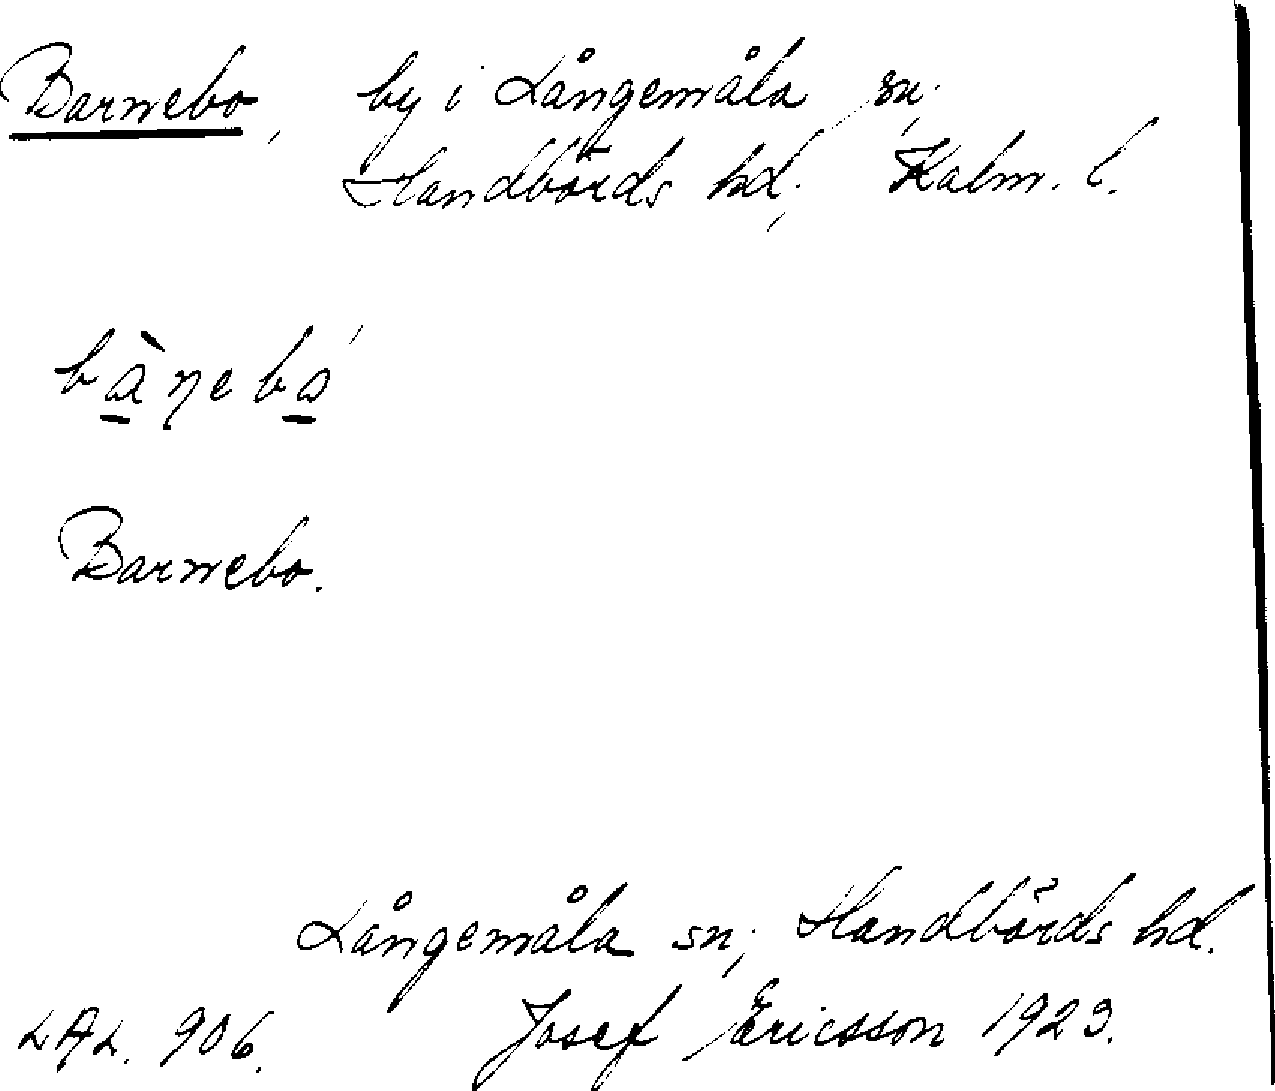 Barnebo, by i Långemåla sn,
Handbörds hd, Kalm. l.
bànebó
Barnebo.
Långemåla sn, Handbörds hd.
LAL. 906. Josef Ericsson 1923.